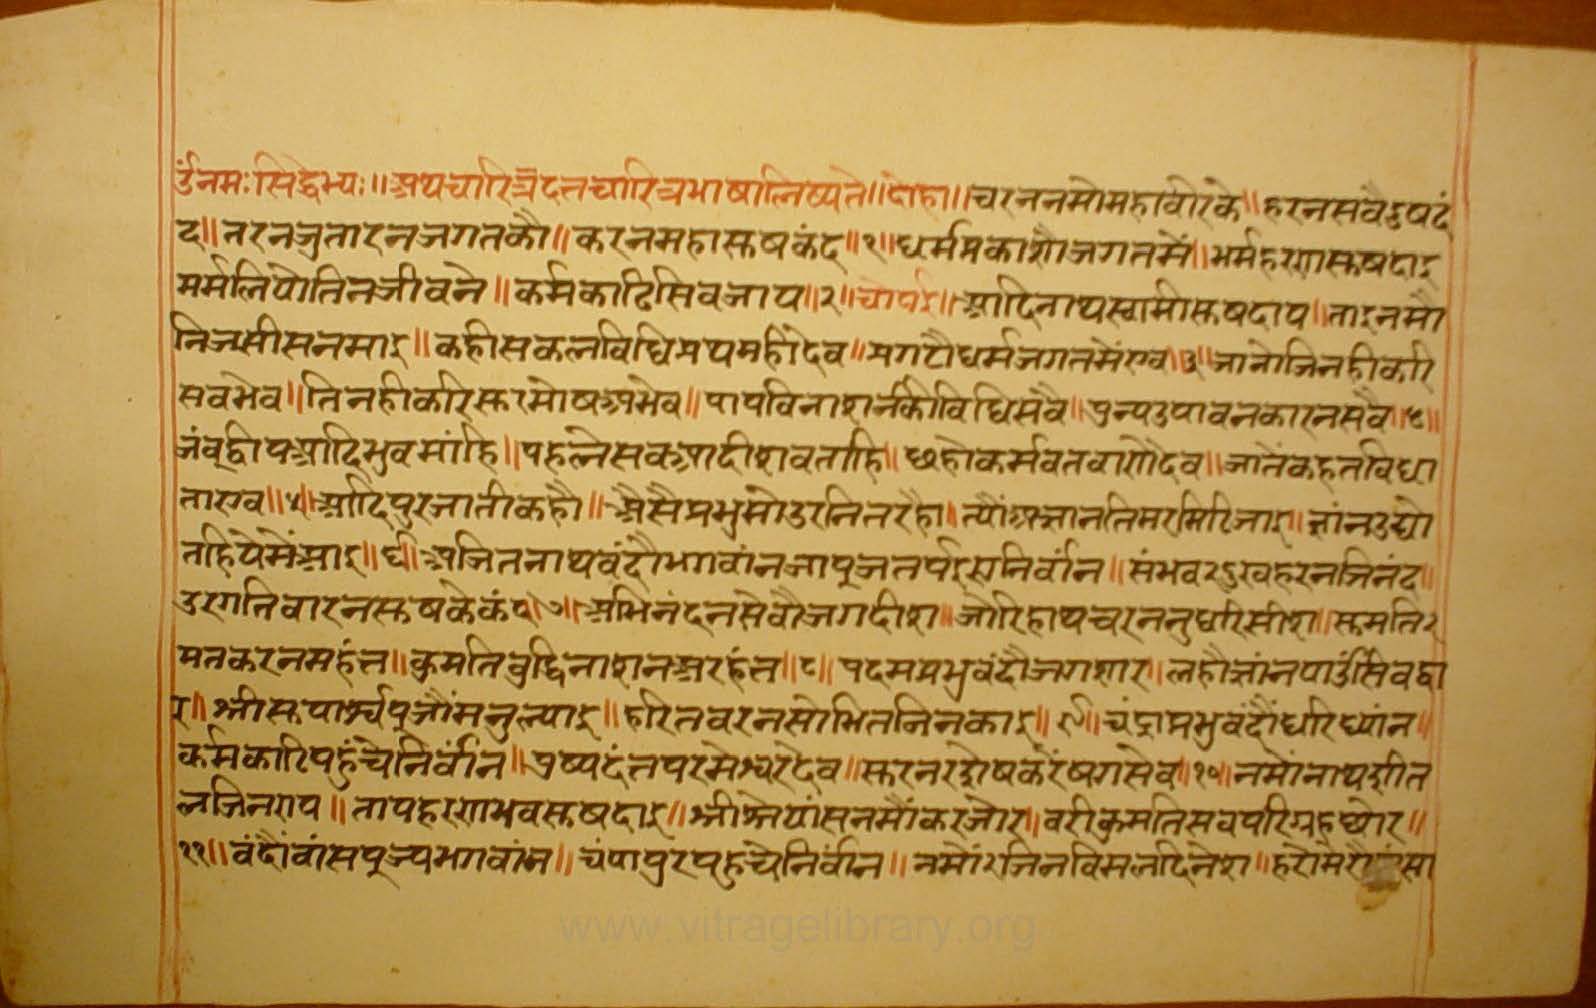 ॐनमःसिद्धेभ्यः॥अथचारित्रदत्तचारित्रभाषालिष्यते॥दोहा॥चरननमोमहावीरके॥हरनसवैदुषदं
द॥तरनजुतारनजगतकौ॥करनमहासुषकंद॥१॥धर्मप्रकाशौजगतमें॥भर्महरणसुषदाइ
मर्मलियोतिनजीवने॥कर्मकाटिसिवजाय॥२॥चौपई॥आदिनाथस्वामीसुषदाय॥ताइनमौ
निजसीसनमाइ॥कहीसकलविधिप्रथमहींदेव॥प्रगटौधर्मजगतमेंएव॥३॥जानोजिनहीकरि
सवभेव॥तिनहीकरिसुरमोषअभेव॥पापविनाशनकीविधिसवै॥पुन्यउपावनकारनसवै॥४॥
जंवूद्वीपआदिभुवमांहि॥पहलेसवआदीशवताहि॥छहौकर्मवतवाणैदेव॥जातैंकहतविधा
ताएव॥५॥आदिपुरजातीकहौ॥अैसैप्रभुमोउरनितरहौ॥त्यौंअज्ञानतिमरमिटिजाइ॥ज्ञांनउद्यो
तहियेमेंआइ॥६॥अजितनाथवंदौभगवांनजापूजतपईएनिर्वांन॥संभवदुखहरनजिनंद॥
दुरगनिवारनसुषकेकंद॥७॥अभिनंदनसेवौजगदीश॥जोरिहाथचरननुधरिसीश॥सुमतिर
मतकरनमहंत॥कुमतिवुद्धिनाशनअरहंत॥८॥पदमप्रभुवंदौजगशार॥लहौज्ञांनपाउंसिवद्वा
र॥श्रीसुपार्श्वपूजौंमनुल्याइ॥हरितवरनसोभितजिनकाइ॥९॥चंद्राप्रभुवंदौंधरिध्यांन॥
कर्मकाटिपहुंचेनिर्वांन॥पुष्पदंतपरमेश्वरदेव॥सुरनरशेषकरेंषगसेव॥१०॥नमोंनाथशीत
लजिनराय॥तापहरणभवसुषदाइ॥श्रीश्रेयांसनमौंकरजोर॥वरीकुमतिसवपरिग्रहघोर॥
११॥वंदौंवांसपूज्यभगवांन॥चंपापुरपहुचेनिर्वांन॥नमोंरजिनविमलदिनेश॥हरोमेरौ सा
www.vitragelibrary.org